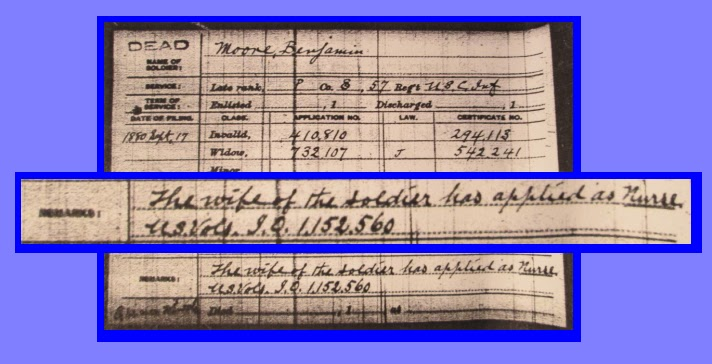 DEAD
Moore, Benjamin
NAME OF
SOLDIER:
SERVICE:
Late rank, P Co. B, 57 Regt U.S.C. Inf
TERM OF
SERVICE:
Enlisted , 1 Discharged , 1
DATE OF FILING. CLASS. APPLICATION NO. LAW. CERTIFICATE NO.
1880 Sept. 17 Invalid, 410,810 294,113
Widow, 732,107 J 542,241
Minor
REMARKS: The wife of the soldier has applied as Nurse.
U.S. Vols. I.O. 1,152,560
REMARKS: The wife of the soldier has applied as Nurse.
U.S. Vols. I.O. 1,152,560
Died , 1 at